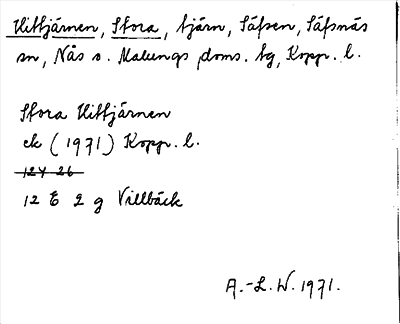 Vittjärnen, Stora, tjärn, Säfsen, Säfsnäs
sn, Nås o. Malungs doms. tg, Kopp. l.
Stora Vittjärnen
ek (1971) Kopp. l.
12Y 26
12 E 2 g Villbäck
A.-L. W. 1971.